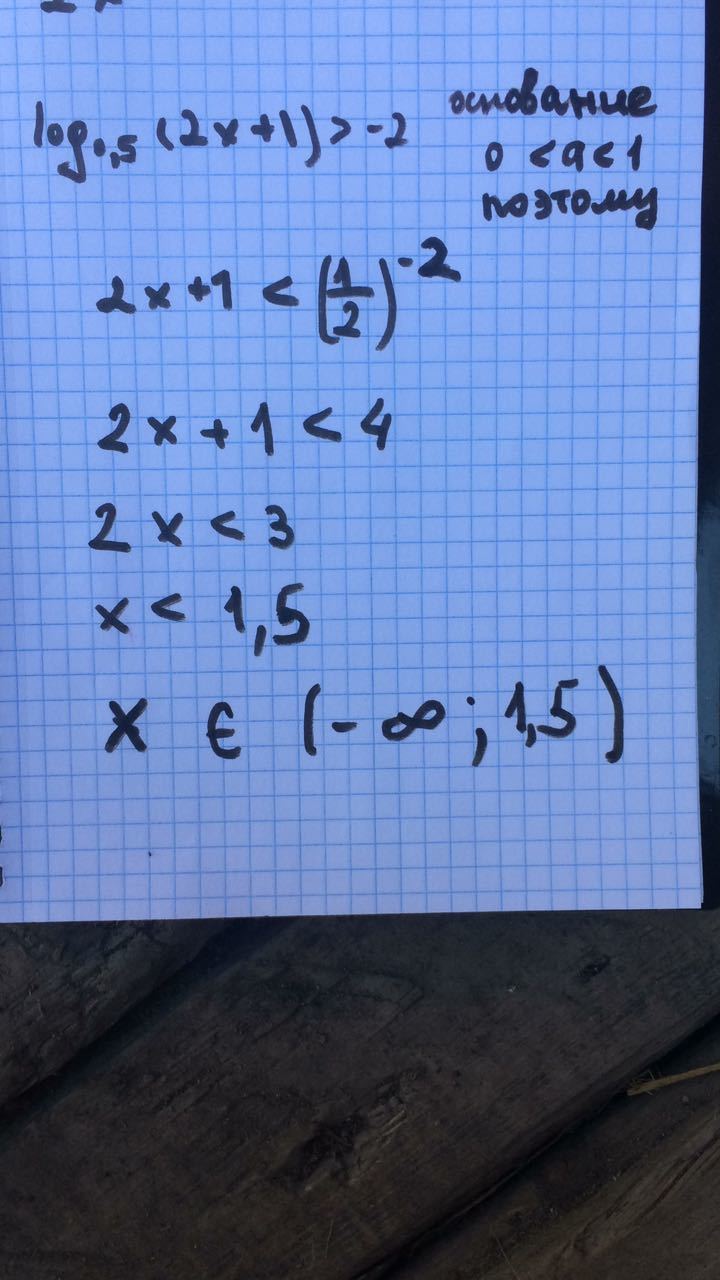 log₀,₅ (2x+1) > -2
основание
0 < a < 1
поэтому
2x+1 < (1/2)⁻²
2x + 1 < 4
2x < 3
x < 1,5
x ∈ (-∞; 1,5)